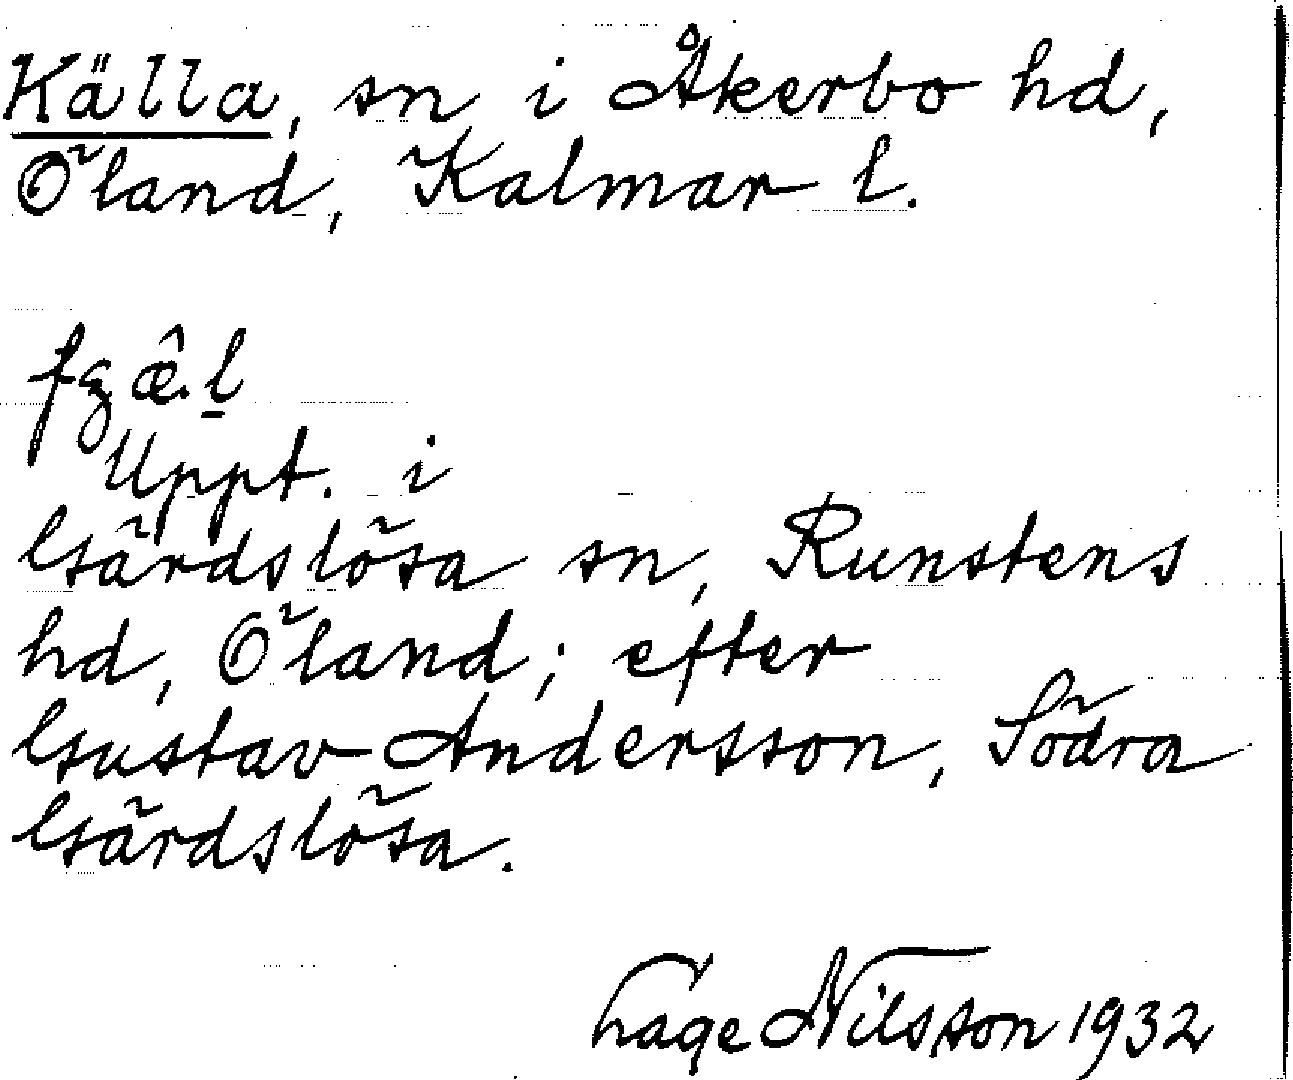 Källa, sn i Åkerbo hd,
Öland, Kalmar l.
Uppt. i
Gärdslösa sn, Runstens
hd, Öland; efter
Gustav Andersson, Södra
Gärdslösa.
Lage Nilsson 1932